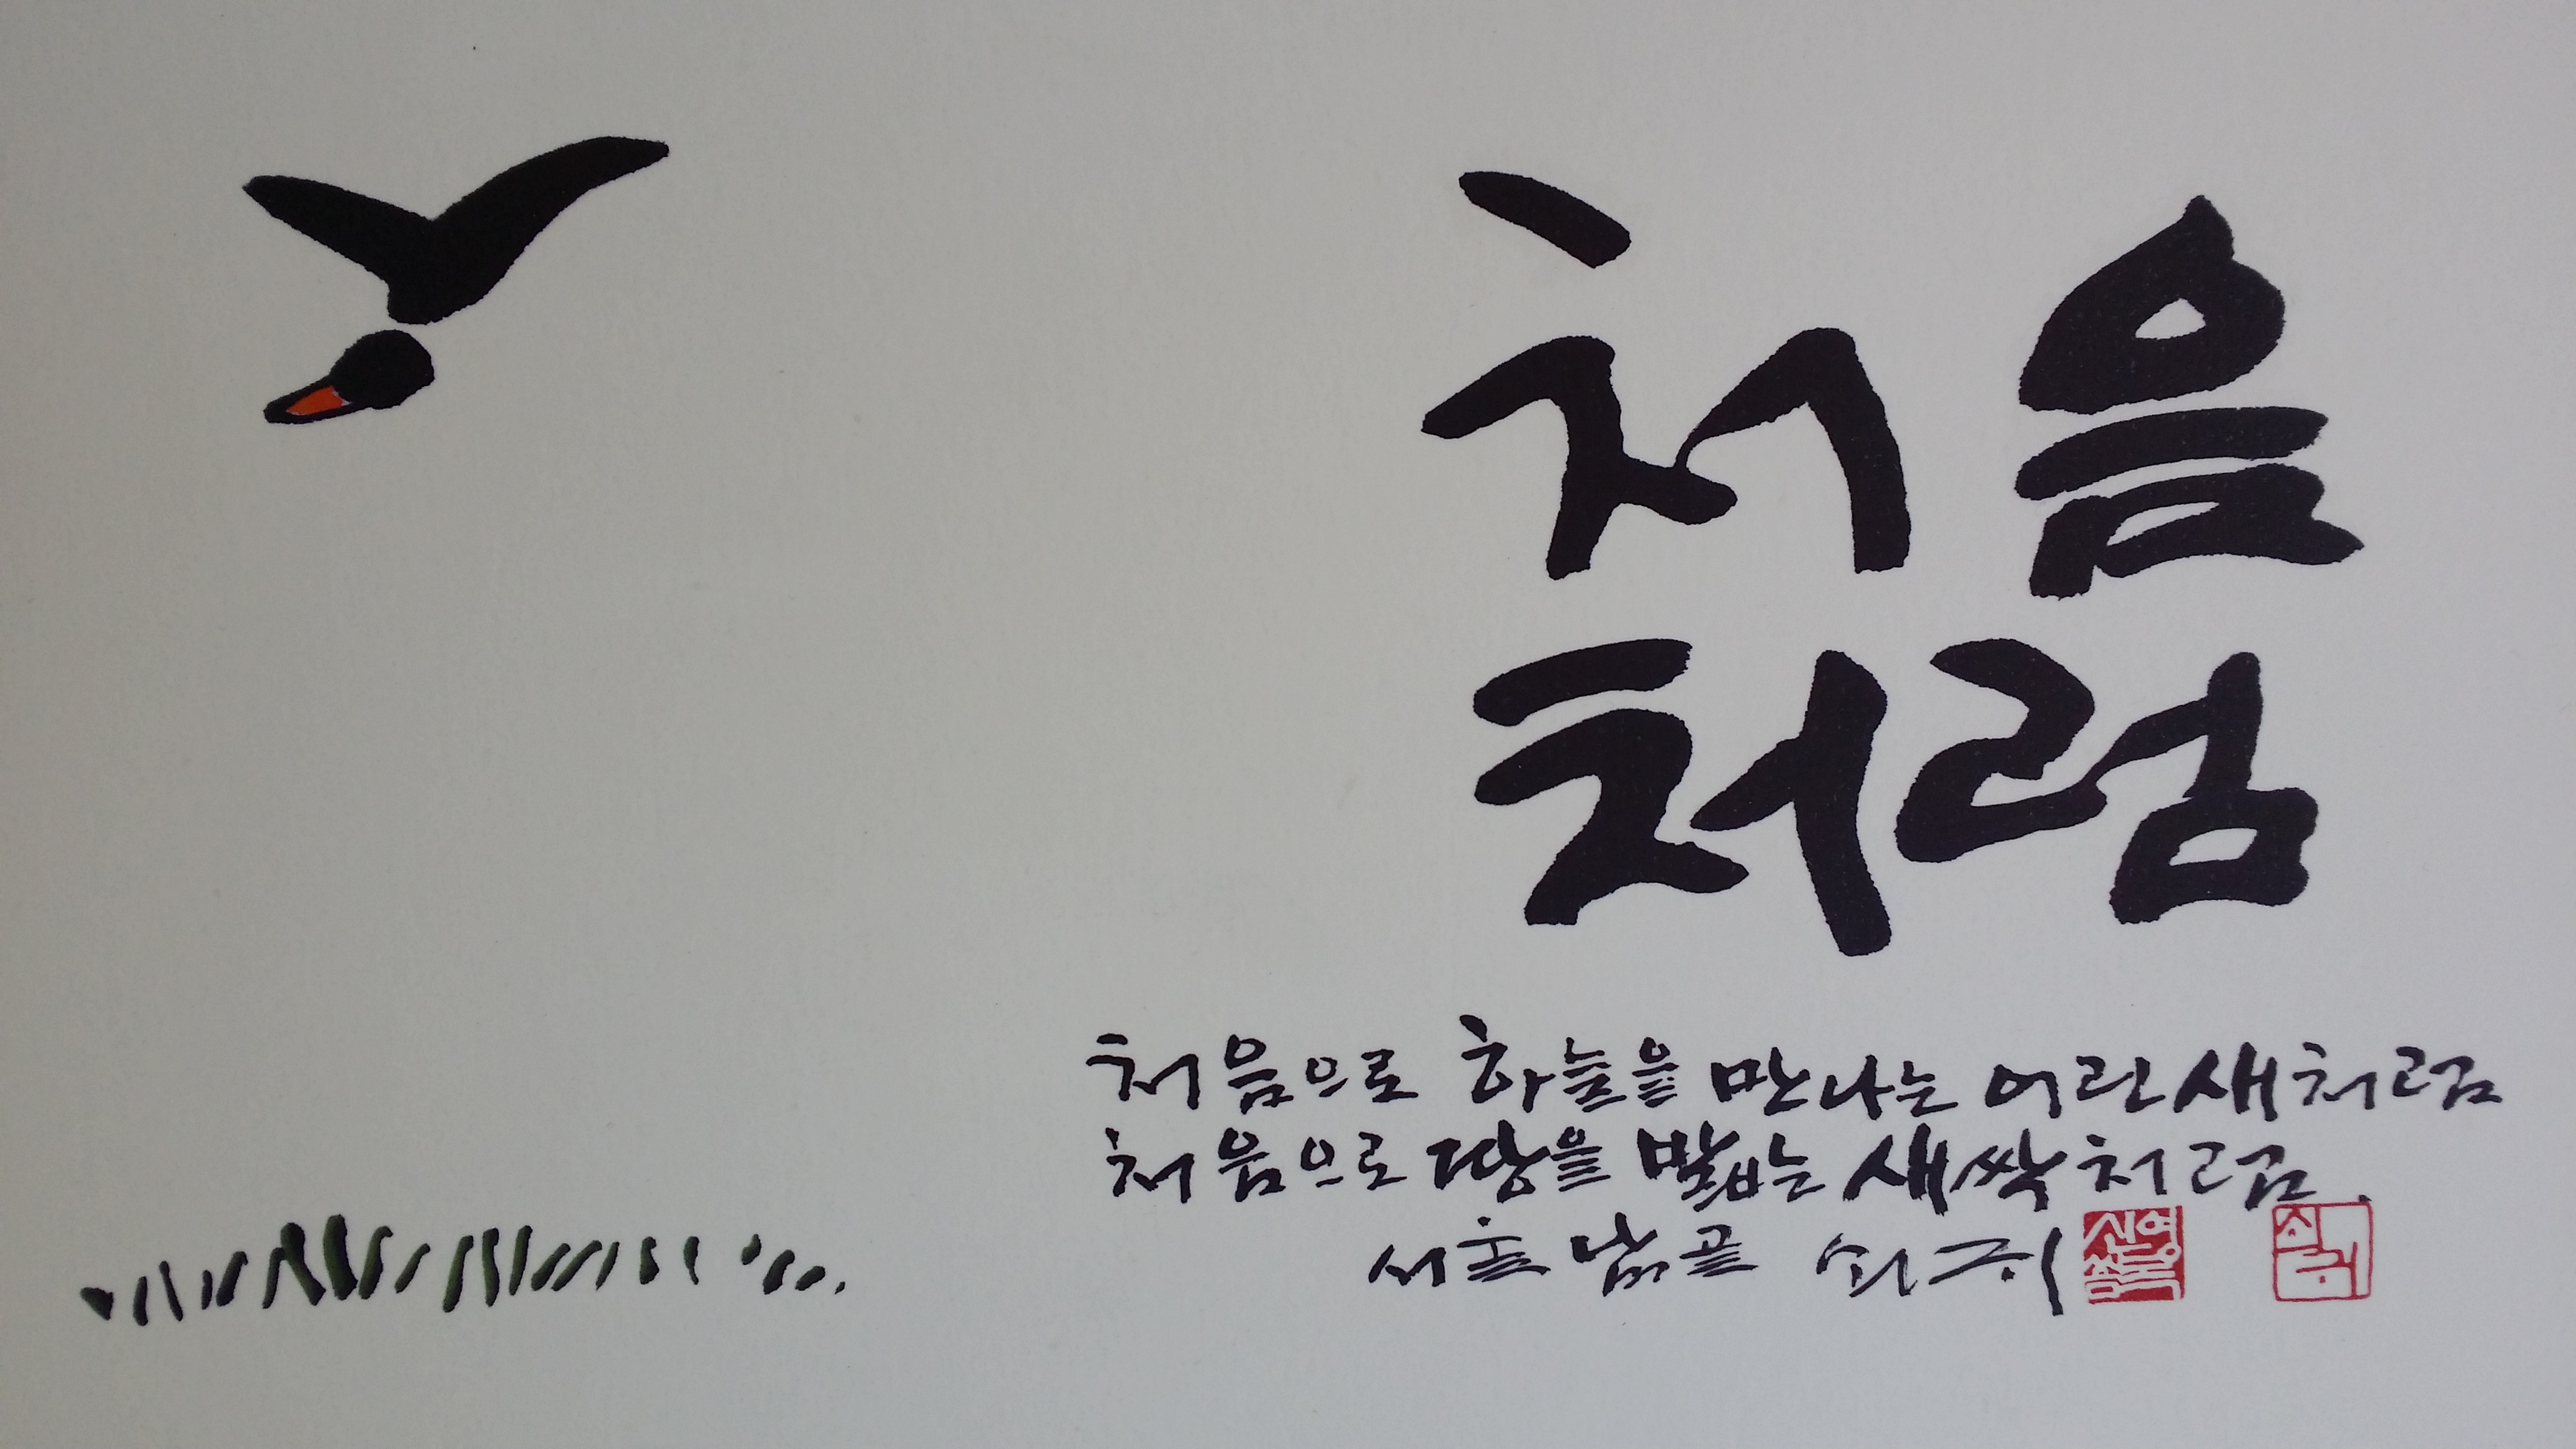 처음
처럼
처음으로 하늘을 만나는 어린새처럼
처음으로 땅을 밟는 새싹처럼
서울 남끝 쇠귀
신영